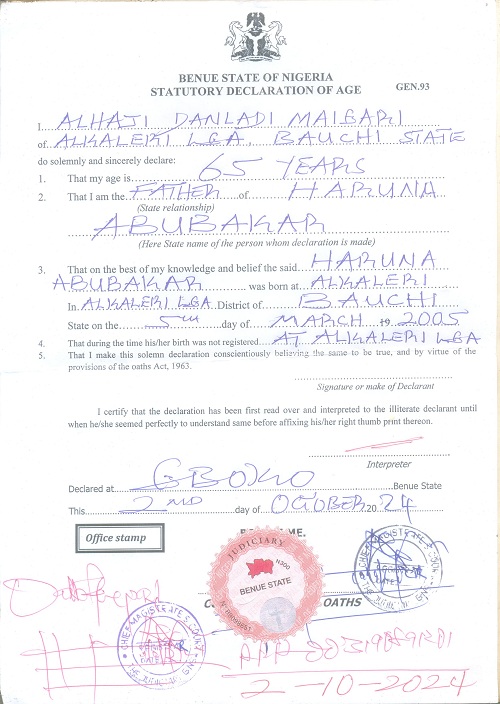 BENUE STATE OF NIGERIA
STATUTORY DECLARATION OF AGE GEN.93
I ALHAJI DANLADI MAIGARI
of ALKALERI LGA, BAUCHI STATE
do solemnly and sincerely declare:
1. That my age is 65 YEARS
2. That I am the FATHER of HARUNA
(State relationship)
ABUBAKAR
(Here State name of the person whom declaration is made)
3. That on the best of my knowledge and belief the said HARUNA
ABUBAKAR was born at ALKALERI
In ALKALERI LGA District of BAUCHI
State on the 5TH day of MARCH 19 2005
4. That during the time his/her birth was not registered AT ALKALERI LGA
5. That I make this solemn declaration conscientiously believing the same to be true, and by virtue of the
provisions of the oaths Act, 1963.
Signature or make of Declarant
I certify that the declaration has been first read over and interpreted to the illiterate declarant until
when he/she seemed perfectly to understand same before affixing his/her right thumb print thereon.
Interpreter
Declared at GBOKO Benue State
This 2ND day of OCTOBER 2024
Office stamp
JUDICIARY
N300
BENUE STATE
OATHS
2-10-2024